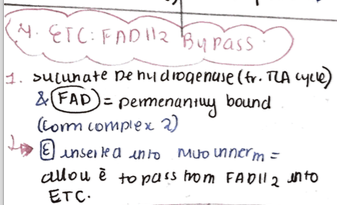 4. ETC: FADH2 Bypass
1. succinate Dehydrogenase (fr. TCA cycle)
& FAD = permenantly bound
(form complex 2)
2 E inserted into mito inner m =
allow ē to pass from FADH2 into
ETC.